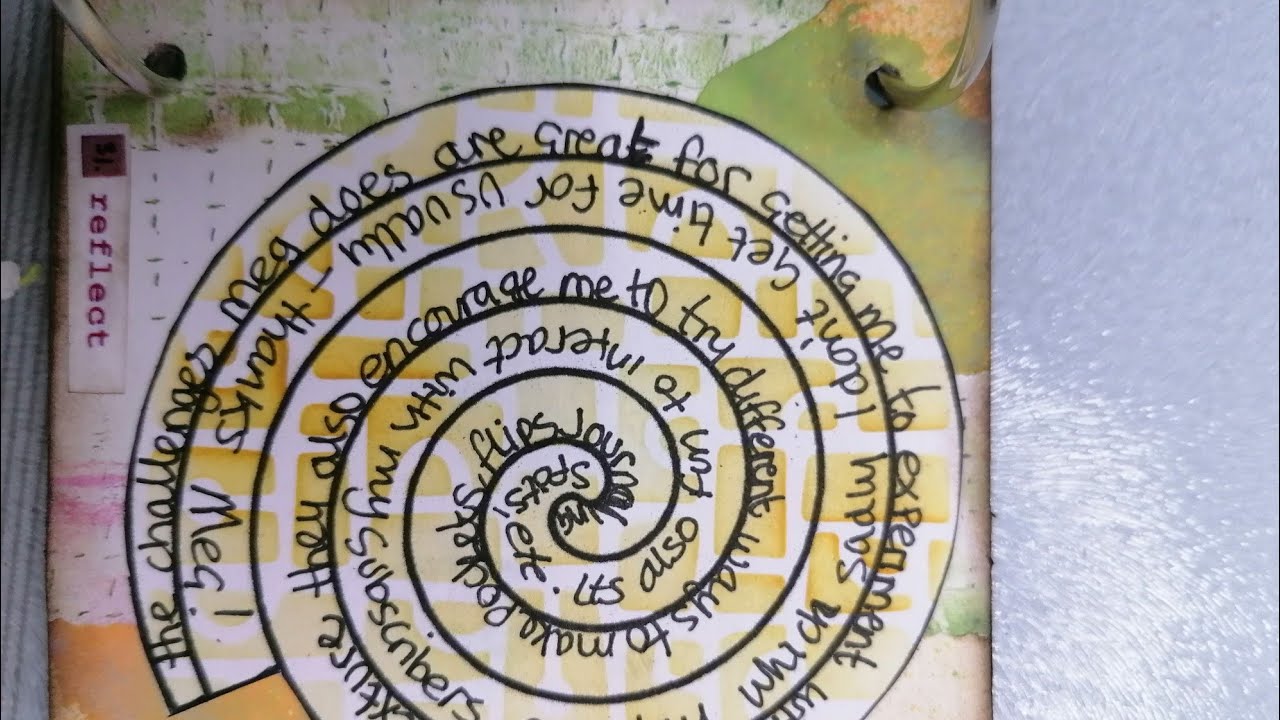 31. reflect
the challenges meg does are great for getting me to experament
that also encourage me to try different ways to make pockets, flips, journal
spots, etc. its also fun to interact with my subscribers
which I dont get time for usually - thanks Meg!